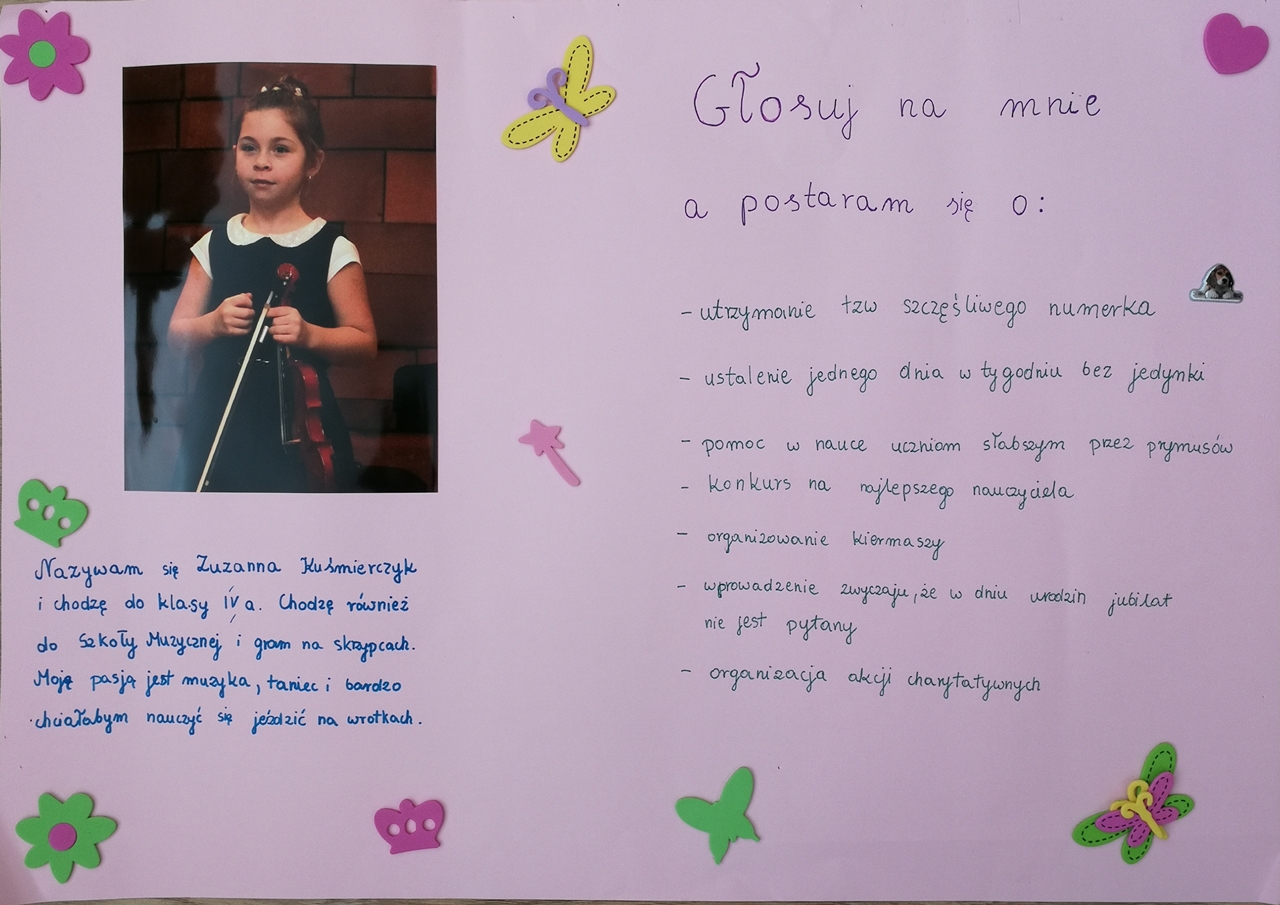 Nazywam się Zuzanna Kuśmierczyk
i chodzę do klasy IV a. Chodzę również
do Szkoły Muzycznej i gram na skrzypcach.
Moją pasją jest muzyka, taniec i bardzo
chciałabym nauczyć się jeździć na wrotkach.
Głosuj na mnie
a postaram się o:
- utrzymanie tzw szczęśliwego numerka
- ustalenie jednego dnia w tygodniu bez jedynki
- pomoc w nauce uczniom słabszym przez prymusów
- konkurs na najlepszego nauczyciela
- organizowanie kiermaszy
- wprowadzenie zwyczaju, że w dniu urodzin jubilat
nie jest pytany
- organizacja akcji charytatywnych